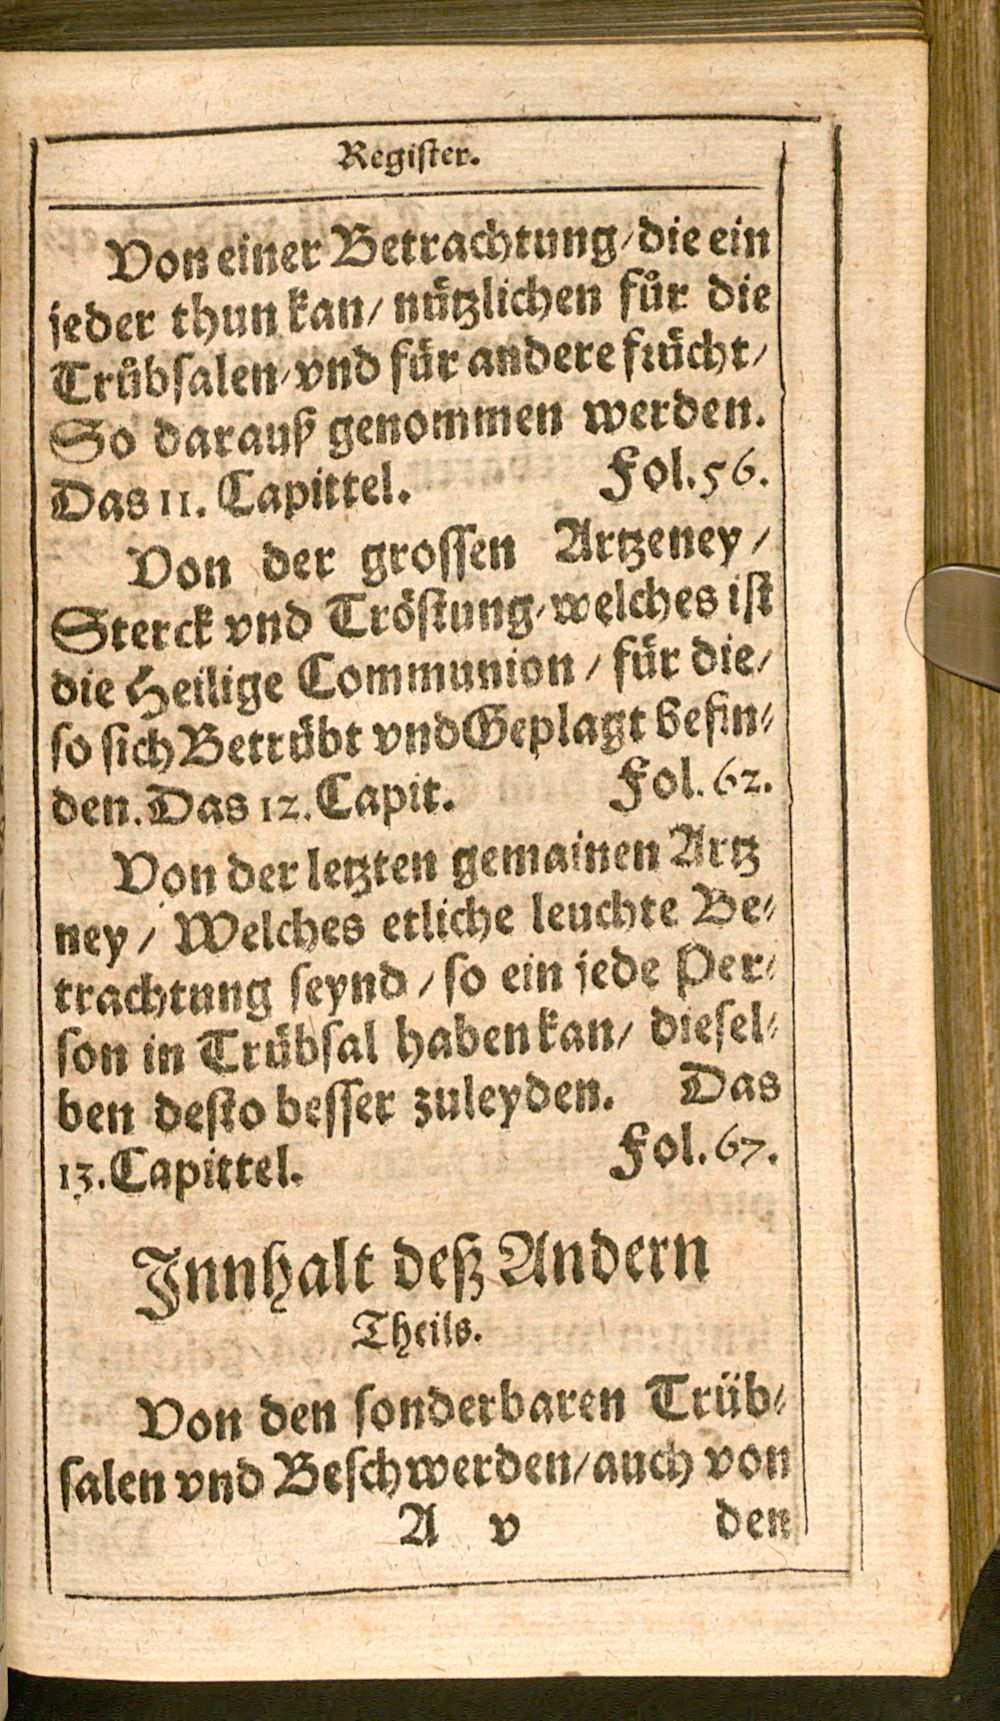 Regiſter.
Von einer Betrachtung/ die ein
jeder thun kan/ nützlichen fuͤr die
Truͤbſalen/ vnd für andere frücht/
So darauß genommen werden.
Das 11. Capittel. Fol. 56.
Von der groſſen Artzeney/
Sterck vnd Tröſtung/ welches iſt
die Heilige Communion/ für die/
ſo ſich Betrübt vnd Geplagt befin⸗
den. Das 12. Capit. Fol. 62.
Von der letzten gemainen Artz
ney/ Welches etliche leuchte Be⸗
trachtung ſeynd/ ſo ein jede Per⸗
ſon in Trübſal haben kan/ dieſel⸗
ben deſto beſſer zuleyden. Das
13. Capittel. Fol. 67.
Innhalt deß Andern
Theils.
Von den ſonderbaren Trüb⸗
ſalen vnd Beſchwerden/ auch von
A v den